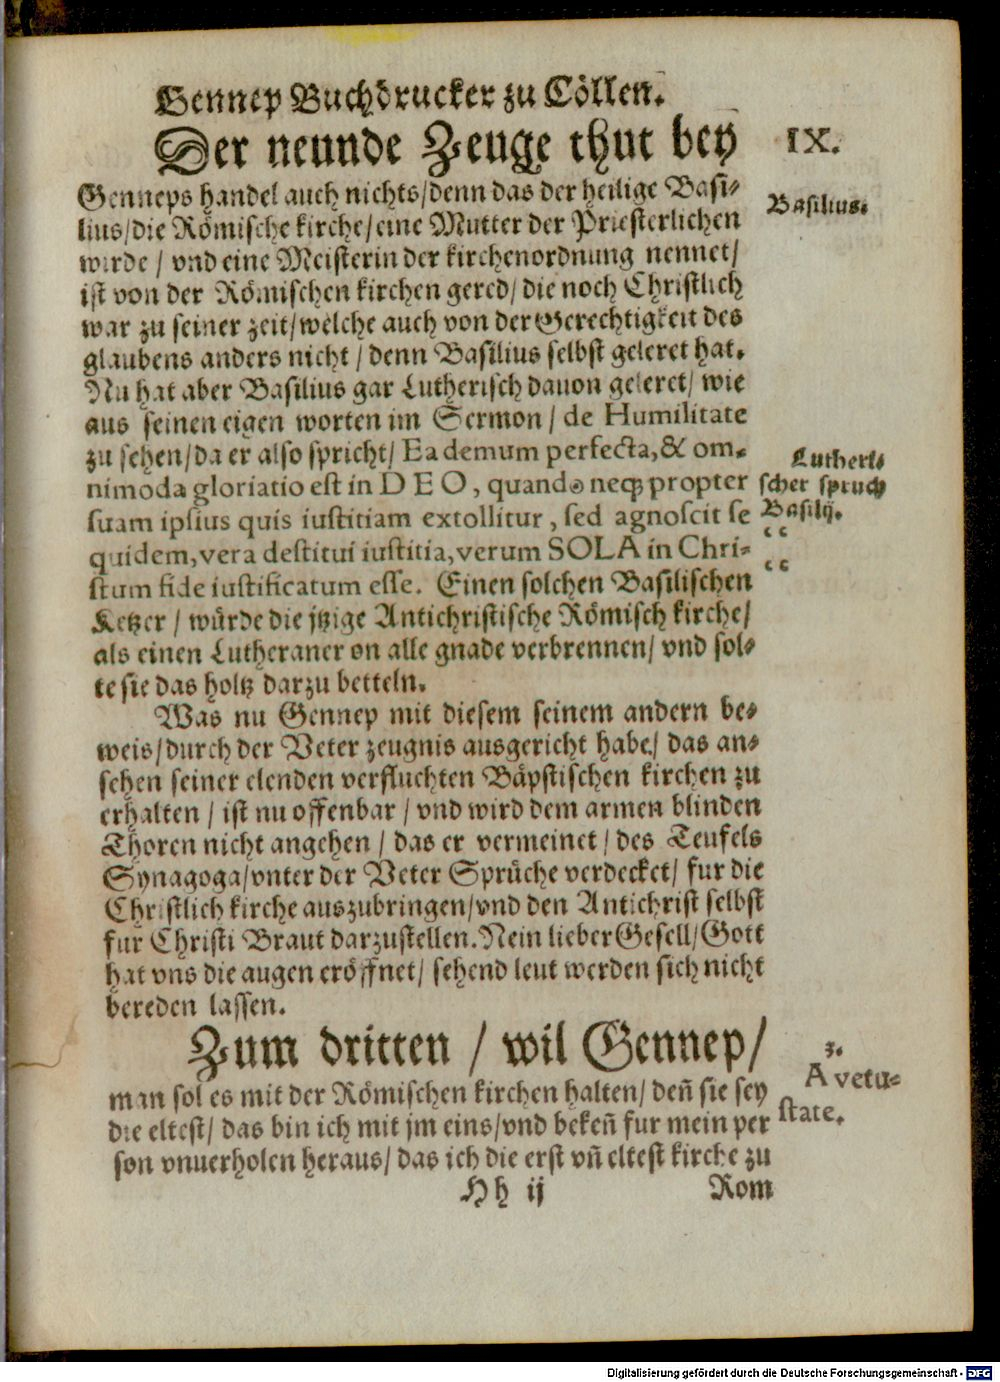 Gennep Buchdrucker zu Cöllen.
Der neunde Zeuge thut bey
IX.
Genneps handel auch nichts/denn das der heilige Basi-
Basilius.
lius/die Römische kirche/eine Mutter der Priesterlichen
wirde / vnd eine Meisterin der kirchenordnung nennet/
ist von der Römischen kirchen gered/ die noch Christlich
war zu seiner zeit/welche auch von der Gerechtigkeit des
glaubens anders nicht / denn Basilius selbst geleret hat.
Nu hat aber Basilius gar Lutherisch dauon geleret/ wie
aus seinen eigen worten im Sermon / de Humilitate
zu sehen/da er also spricht/ Ea demum perfecta,& om-
Lutheri-
nimoda gloriatio est in DEO, quando neq; propter
scher spruch
suam ipsius quis iustitiam extollitur, sed agnoscit se
Basilij.
quidem, vera destitui iustitia, verum SOLA in Chri-
stum fide iustificatum esse. Einen solchen Basilischen
Ketzer / würde die jtzige Antichristische Römisch kirche/
als einen Lutheraner on alle gnade verbrennen/ vnd sol-
te sie das holtz darzu betteln.
Was nu Gennep mit diesem seinem andern be-
weis/durch der Veter zeugnis ausgericht habe/ das an-
sehen seiner elenden verfluchten Bäpstischen kirchen zu
erhalten / ist nu offenbar / vnd wird dem armen blinden
Thoren nicht angehen / das er vermeinet / des Teufels
Synagoga/vnter der Veter Sprüche verdecket/ fur die
Christlich kirche auszubringen/vnd den Antichrist selbst
für Christi Braut darzustellen. Nein lieber Gesell/ Gott
hat vns die augen eröffnet/ sehend leut werden sich nicht
bereden lassen.
Zum dritten / wil Gennep/
3.
man sol es mit der Römischen kirchen halten/ deñ sie sey
A vetu-
die eltest/ das bin ich mit jm eins/vnd bekeñ fur mein per
state.
son vnuerholen heraus/ das ich die erst vñ eltest kirche zu
Hh ij
Rom
Digitalisierung gefördert durch die Deutsche Forschungsgemeinschaft - DFG